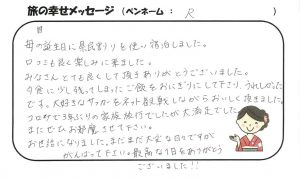 旅の幸せメッセージ（ペンネーム： R ）
母の誕生日に県民割りを使い宿泊しました。
口コミも良く楽しみに来ました。
みなさんとても良くして頂きありがとうございました。
夕食に少し残してしまったご飯をおにぎりにして下さり、うれしかった
です。大好きなサッカーもネット観戦しながらおいしく頂きました。
コロナで3年ぶりの家族旅行でしたが大満足でした。
またぜひお邪魔させて下さい。
お世話になりました。まだまだ大変な日々ですが
がんばって下さい。最高な1日をありがとう
ございました!!